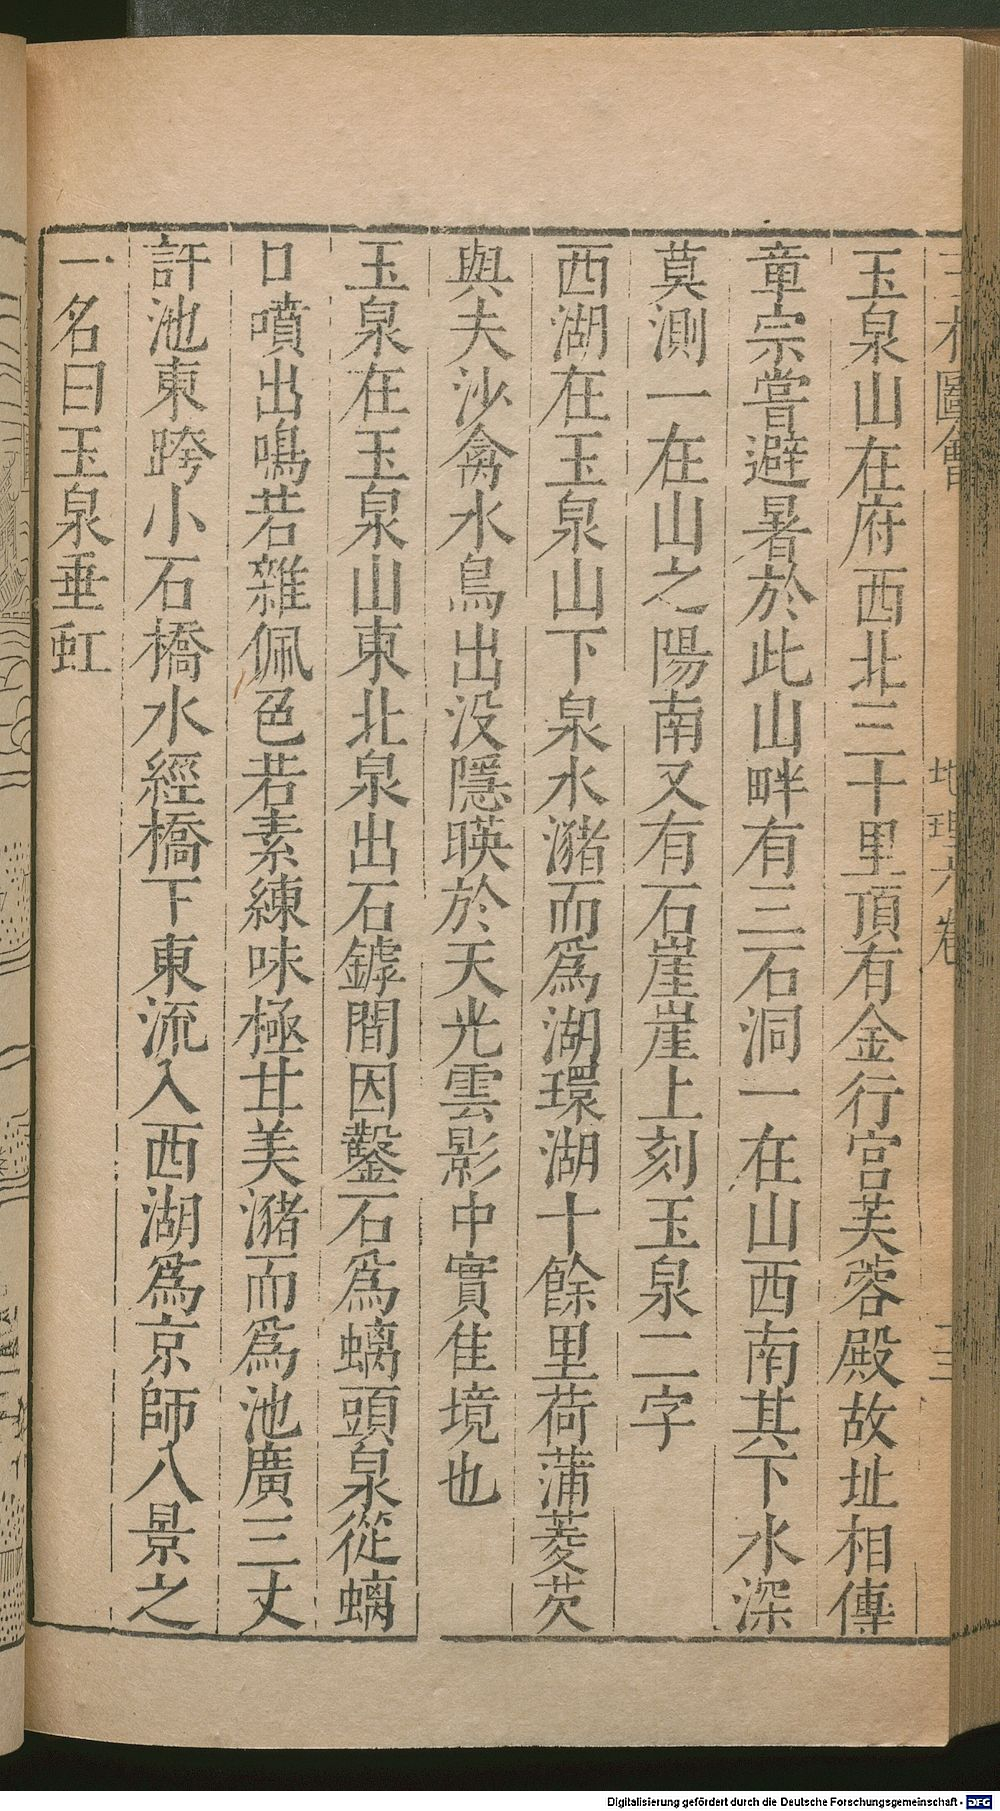 三才圖會 地理六卷 三
玉泉山在府西北三十里頂有金行宮芙蓉殿故址相傳
章宗嘗避暑於此山畔有三石洞一在山西南其下水深
莫測一在山之陽南又有石崖崖上刻玉泉二字
西湖在玉泉山下泉水瀦而爲湖環湖十餘里荷蒲菱芡
與夫沙禽水鳥出没隱暎於天光雲影中實佳境也
玉泉在玉泉山東北泉出石罅間因鑿石爲螭頭泉從螭
口噴出鳴若雜佩色若素練味極甘美瀦而爲池廣三丈
許池東跨小石橋水經橋下東流入西湖爲京師八景之
一名曰玉泉垂虹
Digitalisierung gefördert durch die Deutsche Forschungsgemeinschaft - DFG